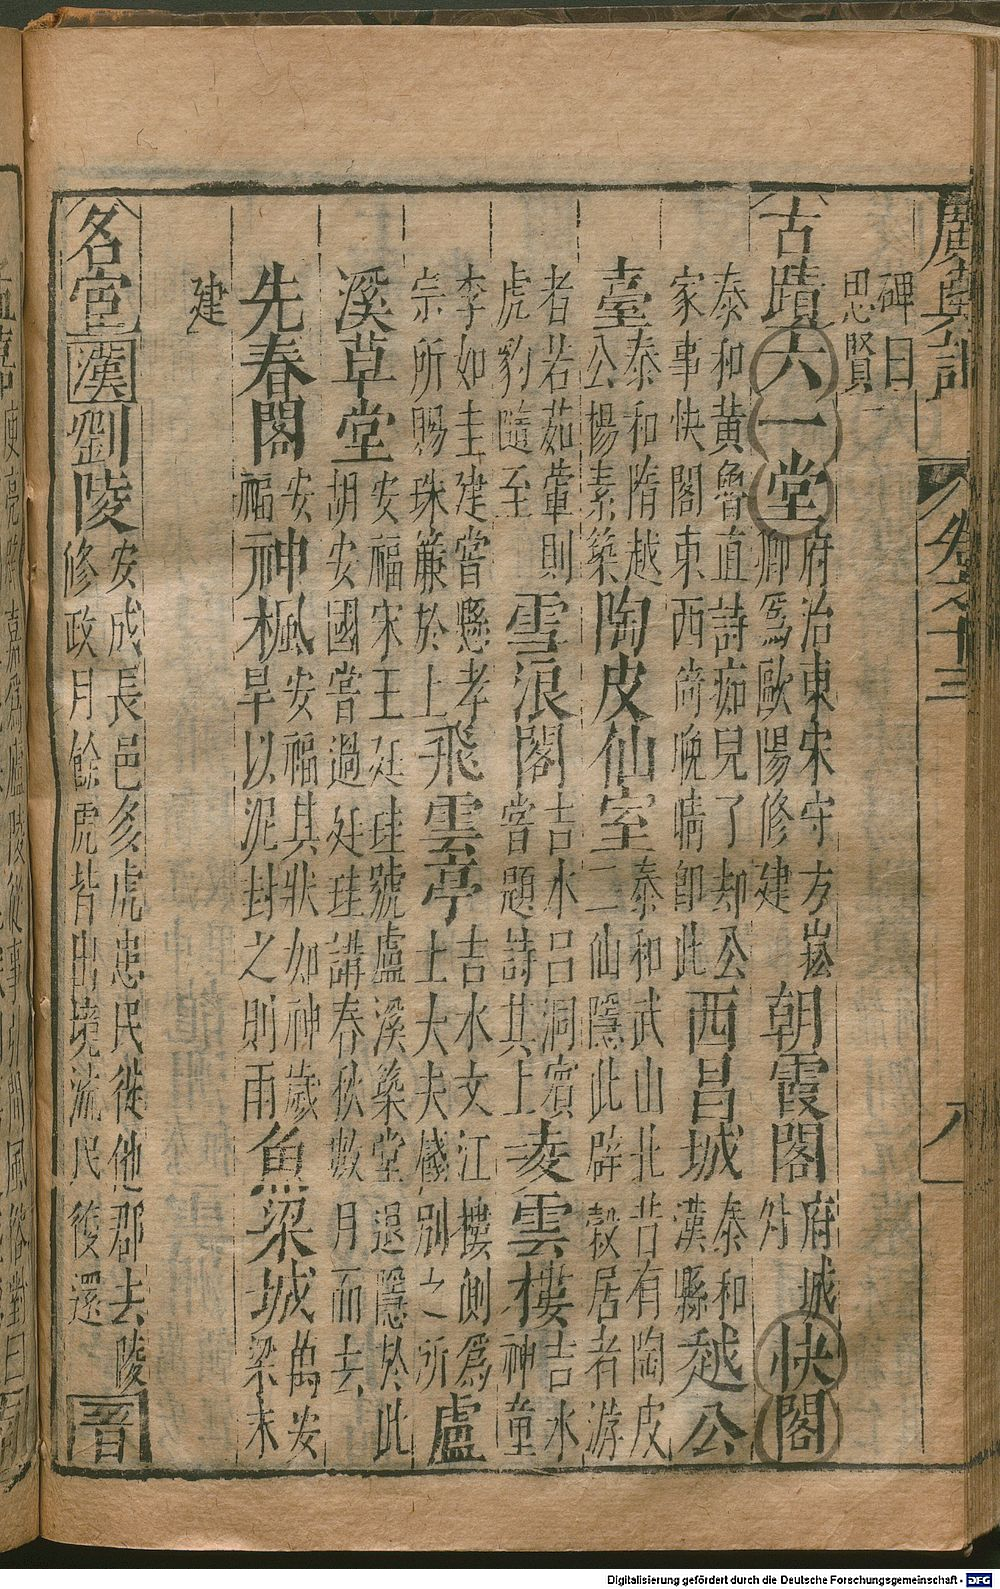 廣輿記 卷之十三 八
碑曰
思賢
古蹟六一堂府治東宋守方崧
卿爲歐陽修建朝霞閣府城
外快閣
泰和黃魯直詩痴兒了却公
家事快閣東西倚晚晴卽此西昌城泰和
漢縣越公
臺泰和隋越
公楊素築陶皮仙室泰和武山北昔有陶皮
二仙隱此辟穀居者游
者若茹葷則
虎豹隨至雪浪閣吉水呂洞賓
嘗題詩其上凌雲樓吉水
神童
李如圭建嘗懸孝
宗所賜珠簾於上飛雲亭吉水文江樓側爲
士大夫餞别之所盧
溪草堂安福宋王廷珪號盧溪築堂退隱於此
胡安國嘗過廷珪講春秋數月而去
先春閣安
福神楓安福其狀如神歲
旱以泥封之則雨魚梁城萬安
梁末
建
名宦漢劉陵安成長邑多虎患民徙他郡去陵
修政月餘虎皆出境流民復還晉
Digitalisierung gefördert durch die Deutsche Forschungsgemeinschaft - DFG